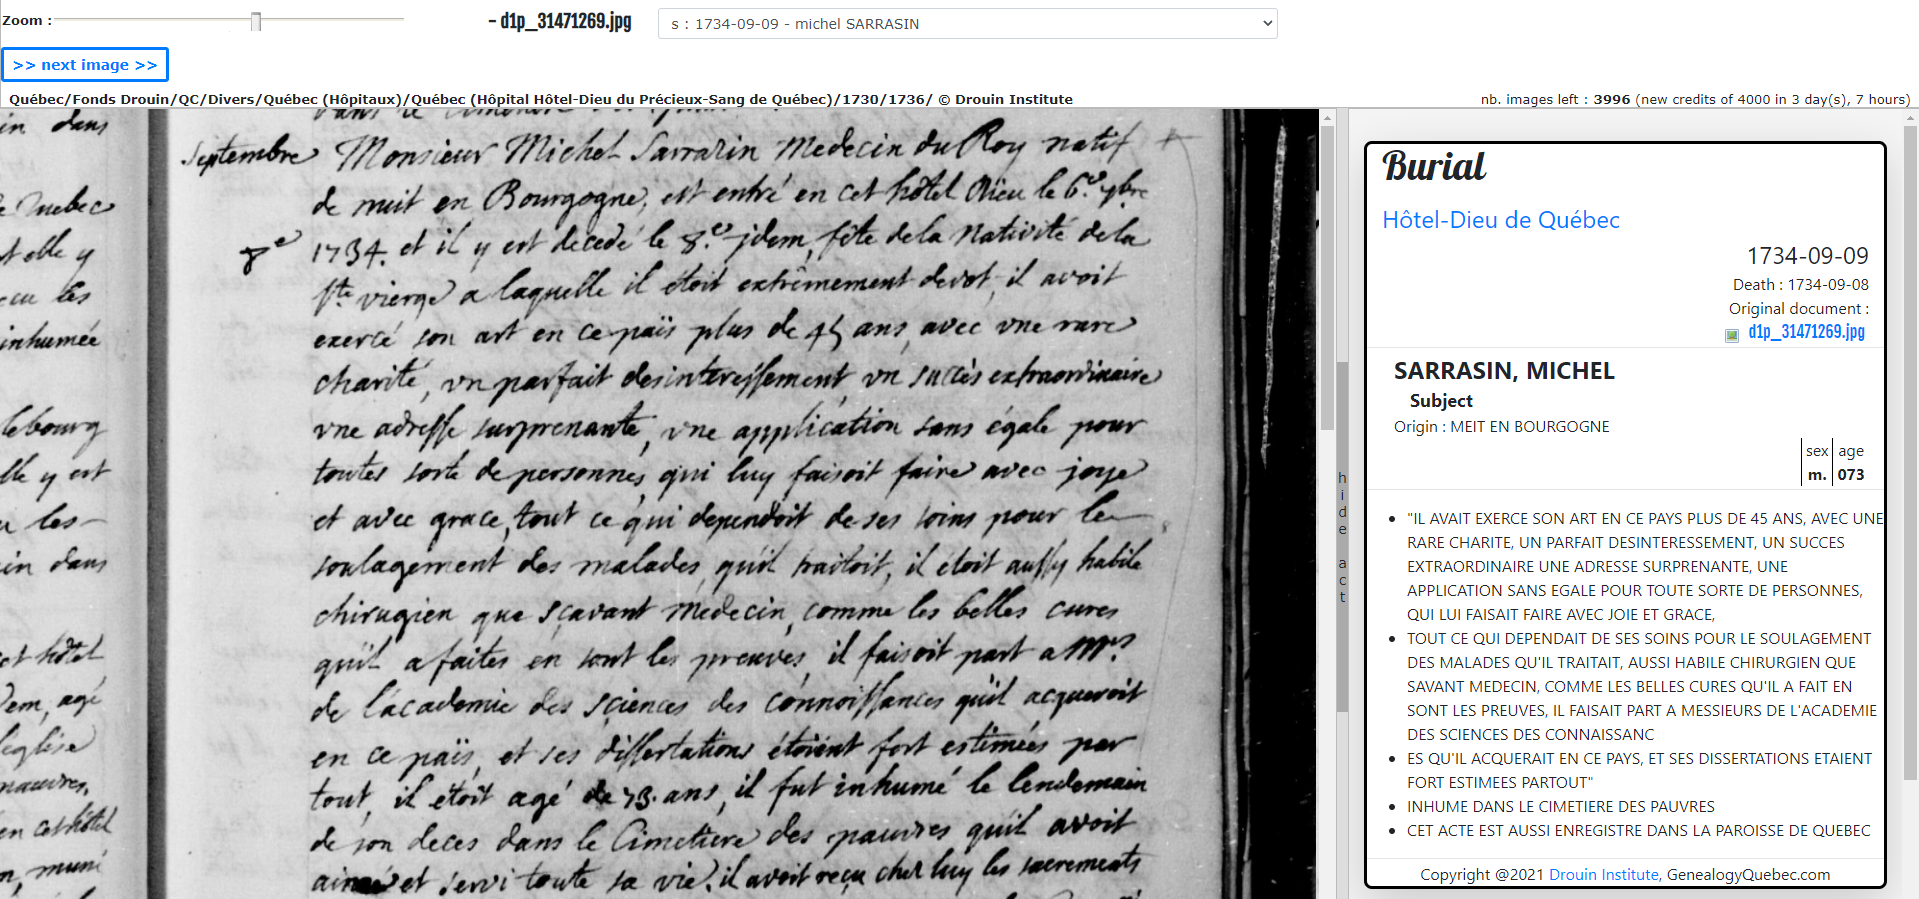 Zoom :
- d1p_31471269.jpg
s : 1734-09-09 - michel SARRASIN
>> next image >>
Québec/Fonds Drouin/QC/Divers/Québec (Hôpitaux)/Québec (Hôpital Hôtel-Dieu du Précieux-Sang de Québec)/1730/1736/ © Drouin Institute
nb. images left : 3996 (new credits of 4000 in 3 day(s), 7 hours)
in dans
Quebec
elle y
les
inhumée
lebourg
elle y est
les
in dans
hôtel
dem, agé
leglise
pauvres,
en cet hôtel
muni
Septembre
8e
Monsieur Michel Sarrazin Medecin du Roy natif
de nuit en Bourgogne, est entré en cet hôtel Dieu le 6.e 7bre
1734. et il y est decedé le 8.e jdem, fête de la Nativité de la
ste vierge a laquelle il étoit extrêmement devot, il avoit
exercé son art en ce païs plus de 45 ans, avec vne rare
charité, vn parfait desinteressement, vn succès extraordinaire
vne adresse surprenante, vne application sans égale pour
toutes sorte de personnes, qui luy faisoit faire avec joye
et avec grace, tout ce qui dependoit de ses soins pour le
soulagement des malades, qu'il traitoit, il étoit aussy habile
chirugien que sçavant medecin, comme les belles cures
qu'il a faites en sont les preuves, il faisoit part a Mrs
de l'academie des sciences des connoissances qu'il acqueroit
en ce païs, et ses dissertations étoient fort estimées par
tout, il étoit agé de 73. ans, il fut inhumé le lendemain
de son deces dans le Cimetiere des pauvres qu'il avoit
aimé et servi toute sa vie, il avoit reçu chez luy les sacrements
hide act
Burial
Hôtel-Dieu de Québec
1734-09-09
Death : 1734-09-08
Original document :
d1p_31471269.jpg
SARRASIN, MICHEL
Subject
Origin : MEIT EN BOURGOGNE
sex age
m. 073
"IL AVAIT EXERCE SON ART EN CE PAYS PLUS DE 45 ANS, AVEC UNE
RARE CHARITE, UN PARFAIT DESINTERESSEMENT, UN SUCCES
EXTRAORDINAIRE UNE ADRESSE SURPRENANTE, UNE
APPLICATION SANS EGALE POUR TOUTE SORTE DE PERSONNES,
QUI LUI FAISAIT FAIRE AVEC JOIE ET GRACE,
TOUT CE QUI DEPENDAIT DE SES SOINS POUR LE SOULAGEMENT
DES MALADES QU'IL TRAITAIT, AUSSI HABILE CHIRURGIEN QUE
SAVANT MEDECIN, COMME LES BELLES CURES QU'IL A FAIT EN
SONT LES PREUVES, IL FAISAIT PART A MESSIEURS DE L'ACADEMIE
DES SCIENCES DES CONNAISSANC
ES QU'IL ACQUERAIT EN CE PAYS, ET SES DISSERTATIONS ETAIENT
FORT ESTIMEES PARTOUT"
INHUME DANS LE CIMETIERE DES PAUVRES
CET ACTE EST AUSSI ENREGISTRE DANS LA PAROISSE DE QUEBEC
Copyright @2021 Drouin Institute, GenealogyQuebec.com